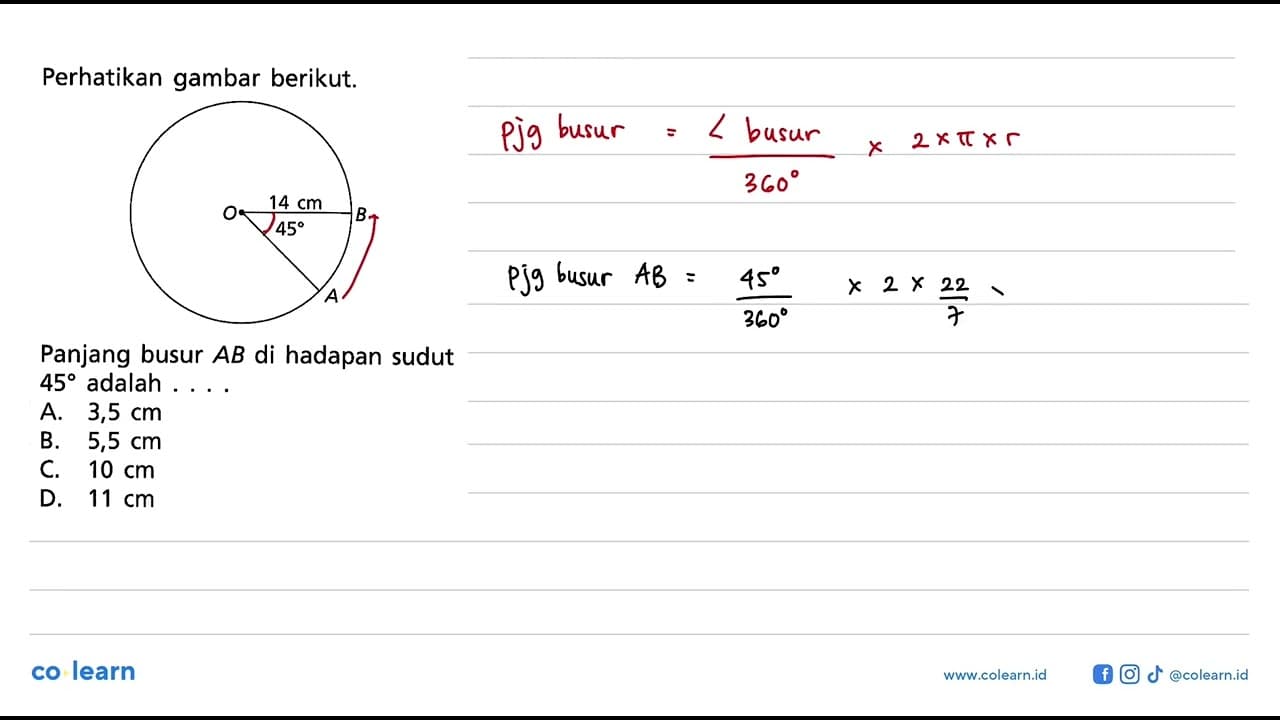 Perhatikan gambar berikut.
O 14 cm B
45°
A
Panjang busur AB di hadapan sudut
45° adalah . . . .
A. 3,5 cm
B. 5,5 cm
C. 10 cm
D. 11 cm
Pjg busur = ∠ busur / 360° × 2 × π × r
Pjg busur AB = 45° / 360° × 2 × 22 / 7
co learn
www.colearn.id
@colearn.id